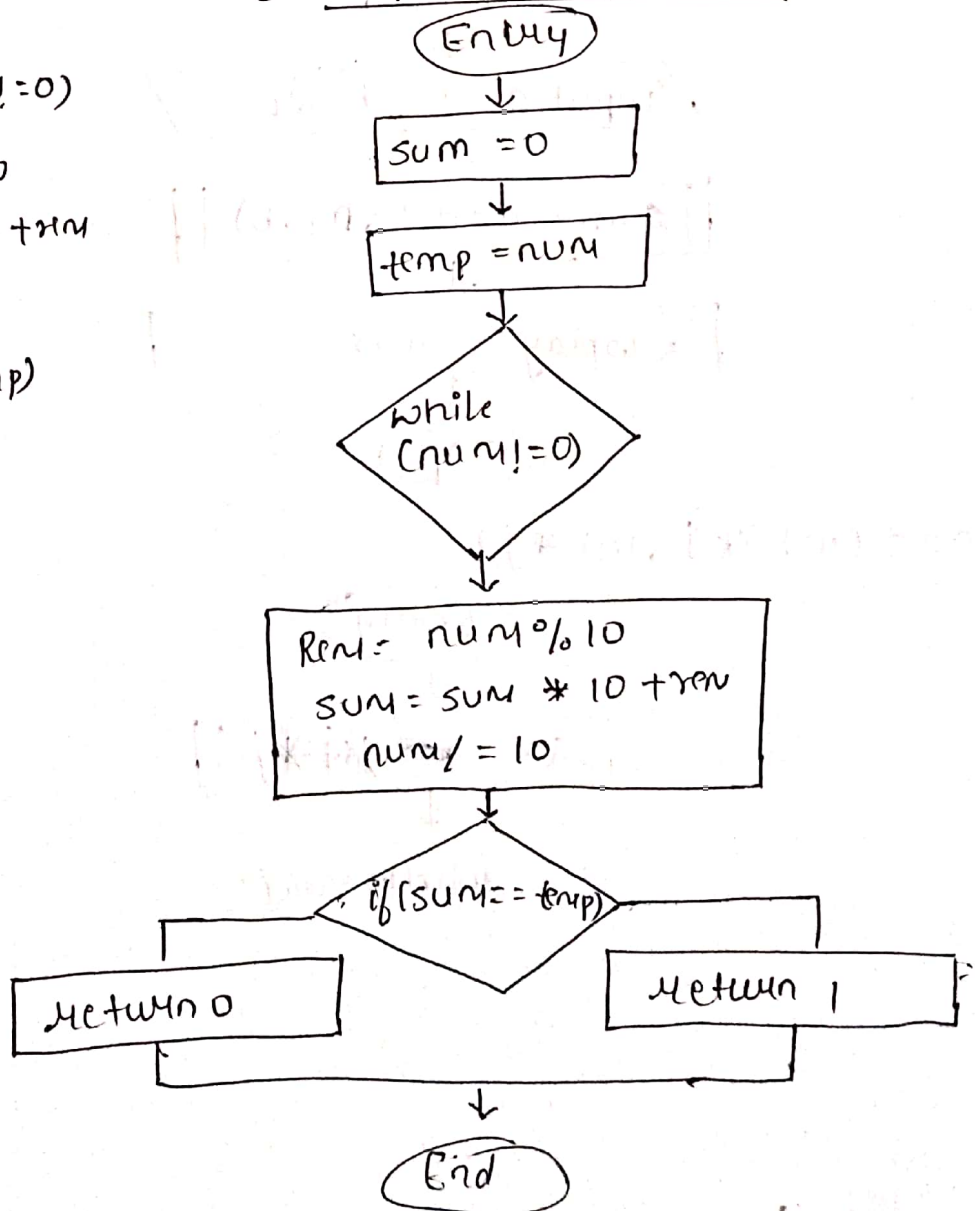 Entry
!=0)
sum =0
+rem
temp =num
p)
while
(num!=0)
Rem= num%10
sum= sum * 10 +rem
num/=10
if(sum==temp)
return 0
return 1
End